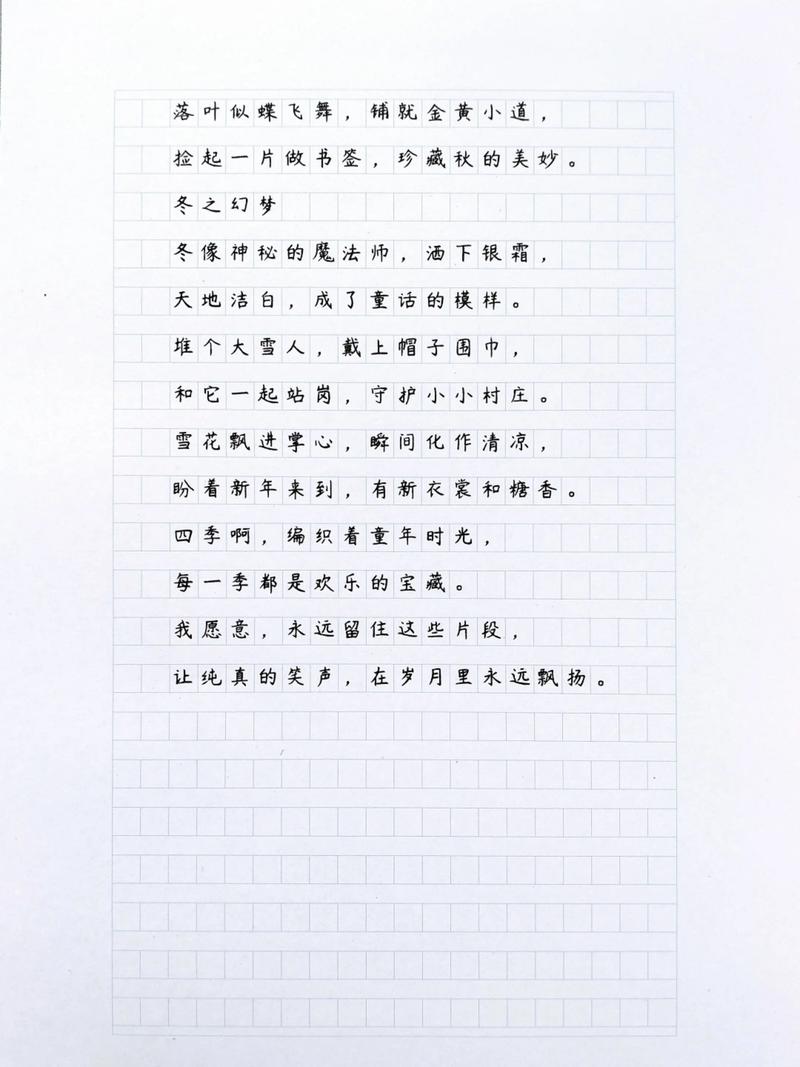 落叶似蝶飞舞，铺就金黄小道，
捡起一片做书签，珍藏秋的美妙。
冬之幻梦
冬像神秘的魔法师，洒下银霜，
天地洁白，成了童话的模样。
堆个大雪人，戴上帽子围巾，
和它一起站岗，守护小小村庄。
雪花飘进掌心，瞬间化作清凉，
盼着新年来到，有新衣裳和糖香。
四季啊，编织着童年时光，
每一季都是欢乐的宝藏。
我愿意，永远留住这些片段，
让纯真的笑声，在岁月里永远飘扬。